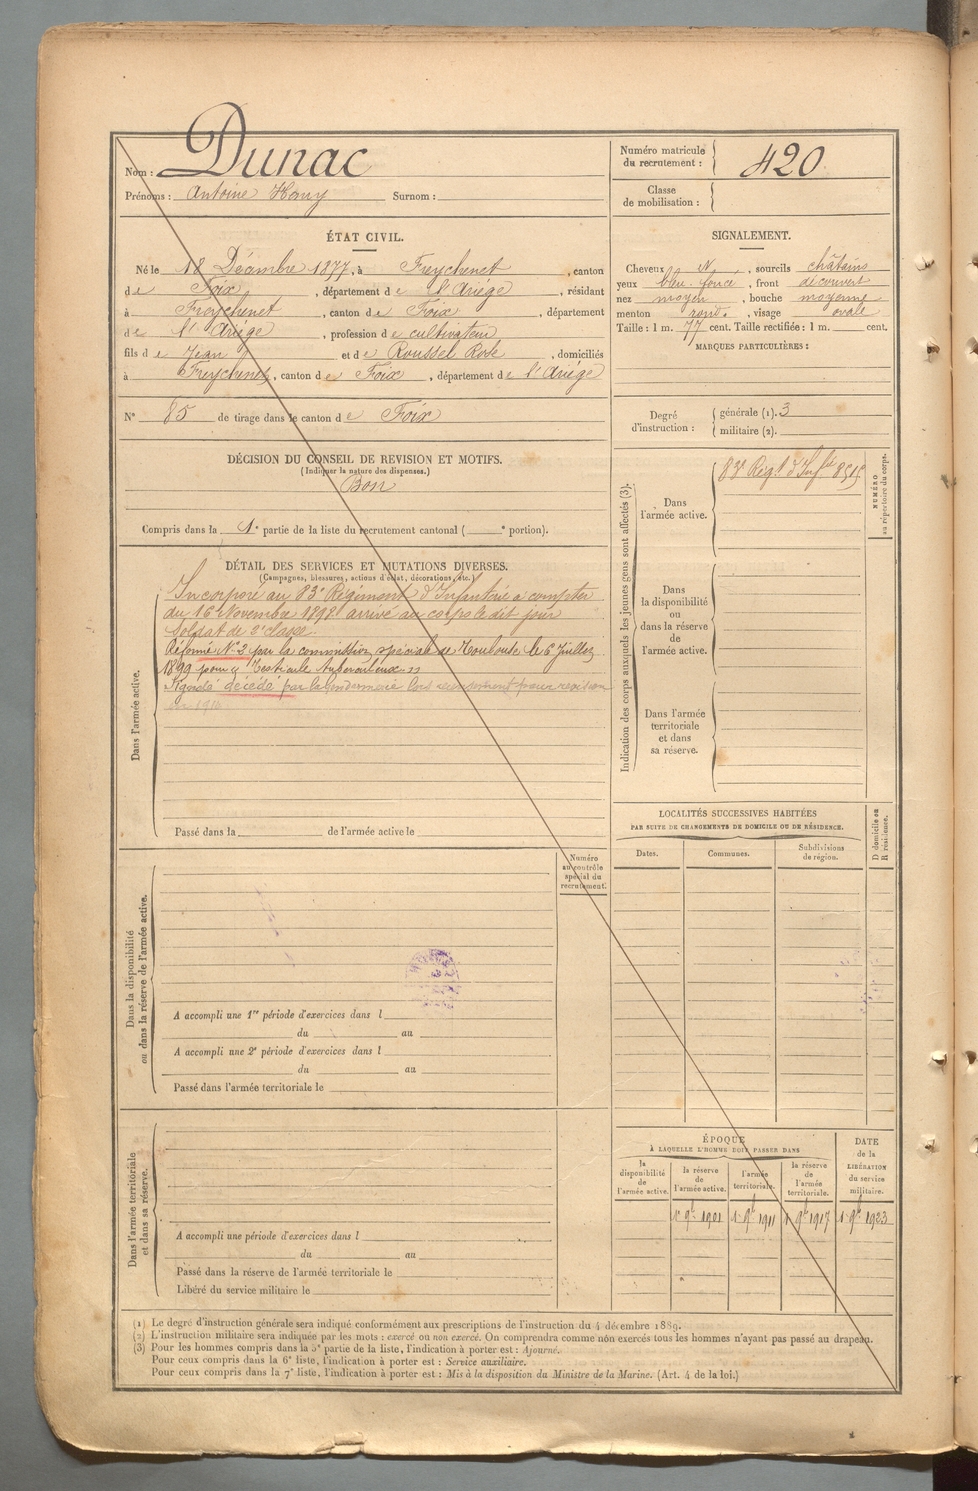 Nom : Dunac
Prénoms : Antoine Henry Surnom :
Numéro matricule du recrutement : 420
Classe de mobilisation :
ÉTAT CIVIL.
Né le 18 Décembre 1877, à Freychenet, canton
de Foix, département de l'Ariége, résidant
à Freychenet, canton de Foix, département
de l'Ariége, profession de cultivateur
fils de Jean et de Roussel Rose, domiciliés
à Freychenet, canton de Foix, département de l'Ariége
N° 85 de tirage dans le canton de Foix
SIGNALEMENT.
Cheveux N, sourcils châtains
yeux bleu foncé, front découvert
nez moyen, bouche moyenne
menton rond, visage ovale
Taille : 1 m. 77 cent. Taille rectifiée : 1 m. cent.
MARQUES PARTICULIÈRES :
Degré d'instruction : générale (1). 3
militaire (2).
DÉCISION DU CONSEIL DE REVISION ET MOTIFS.
(Indiquer la nature des dispenses.)
Bon
Compris dans la 1e partie de la liste du recrutement cantonal ( e portion).
DÉTAIL DES SERVICES ET MUTATIONS DIVERSES.
(Campagnes, blessures, actions d'éclat, décorations, etc.)
Dans l'armée active.
Incorporé au 83e Régiment d'Infanterie à compter
du 16 Novembre 1898 arrivé au corps le dit jour
Soldat de 2e classe.
Réformé N° 2 par la commission spéciale de Toulouse le 6 Juillet
1899 pour « Testicule tuberculeux »
Signalé décédé par la gendarmerie lors recensement pour revision
en 1916
Passé dans la de l'armée active le
Indication des corps auxquels les jeunes gens sont affectés (3).
Dans l'armée active.
83e Régt d'Infie 8515
NUMÉRO au répertoire du corps.
Dans la disponibilité ou dans la réserve de l'armée active.
Dans l'armée territoriale et dans sa réserve.
LOCALITÉS SUCCESSIVES HABITÉES
PAR SUITE DE CHANGEMENTS DE DOMICILE OU DE RÉSIDENCE.
Dates. Communes. Subdivisions de région. D domicile ou R résidence.
Numéro au contrôle spécial du recrutement.
Dans la disponibilité ou dans la réserve de l'armée active.
A accompli une 1re période d'exercices dans l
du au
A accompli une 2e période d'exercices dans l
du au
Passé dans l'armée territoriale le
Dans l'armée territoriale et dans sa réserve.
A accompli une période d'exercices dans l
du au
Passé dans la réserve de l'armée territoriale le
Libéré du service militaire le
ÉPOQUE
À LAQUELLE L'HOMME DOIT PASSER DANS
la disponibilité de l'armée active.
la réserve de l'armée active.
l'armée territoriale.
la réserve de l'armée territoriale.
DATE de la LIBÉRATION du service militaire.
1r 9bre 1901 1r 9bre 1911 1r 9bre 1917 1r 9bre 1923
(1) Le degré d'instruction générale sera indiqué conformément aux prescriptions de l'instruction du 4 décembre 1889.
(2) L'instruction militaire sera indiquée par les mots : exercé ou non exercé. On comprendra comme non exercés tous les hommes n'ayant pas passé au drapeau.
(3) Pour les hommes compris dans la 5e partie de la liste, l'indication à porter est : Ajourné.
Pour ceux compris dans la 6e liste, l'indication à porter est : Service auxiliaire.
Pour ceux compris dans la 7e liste, l'indication à porter est : Mis à la disposition du Ministre de la Marine. (Art. 4 de la loi.)